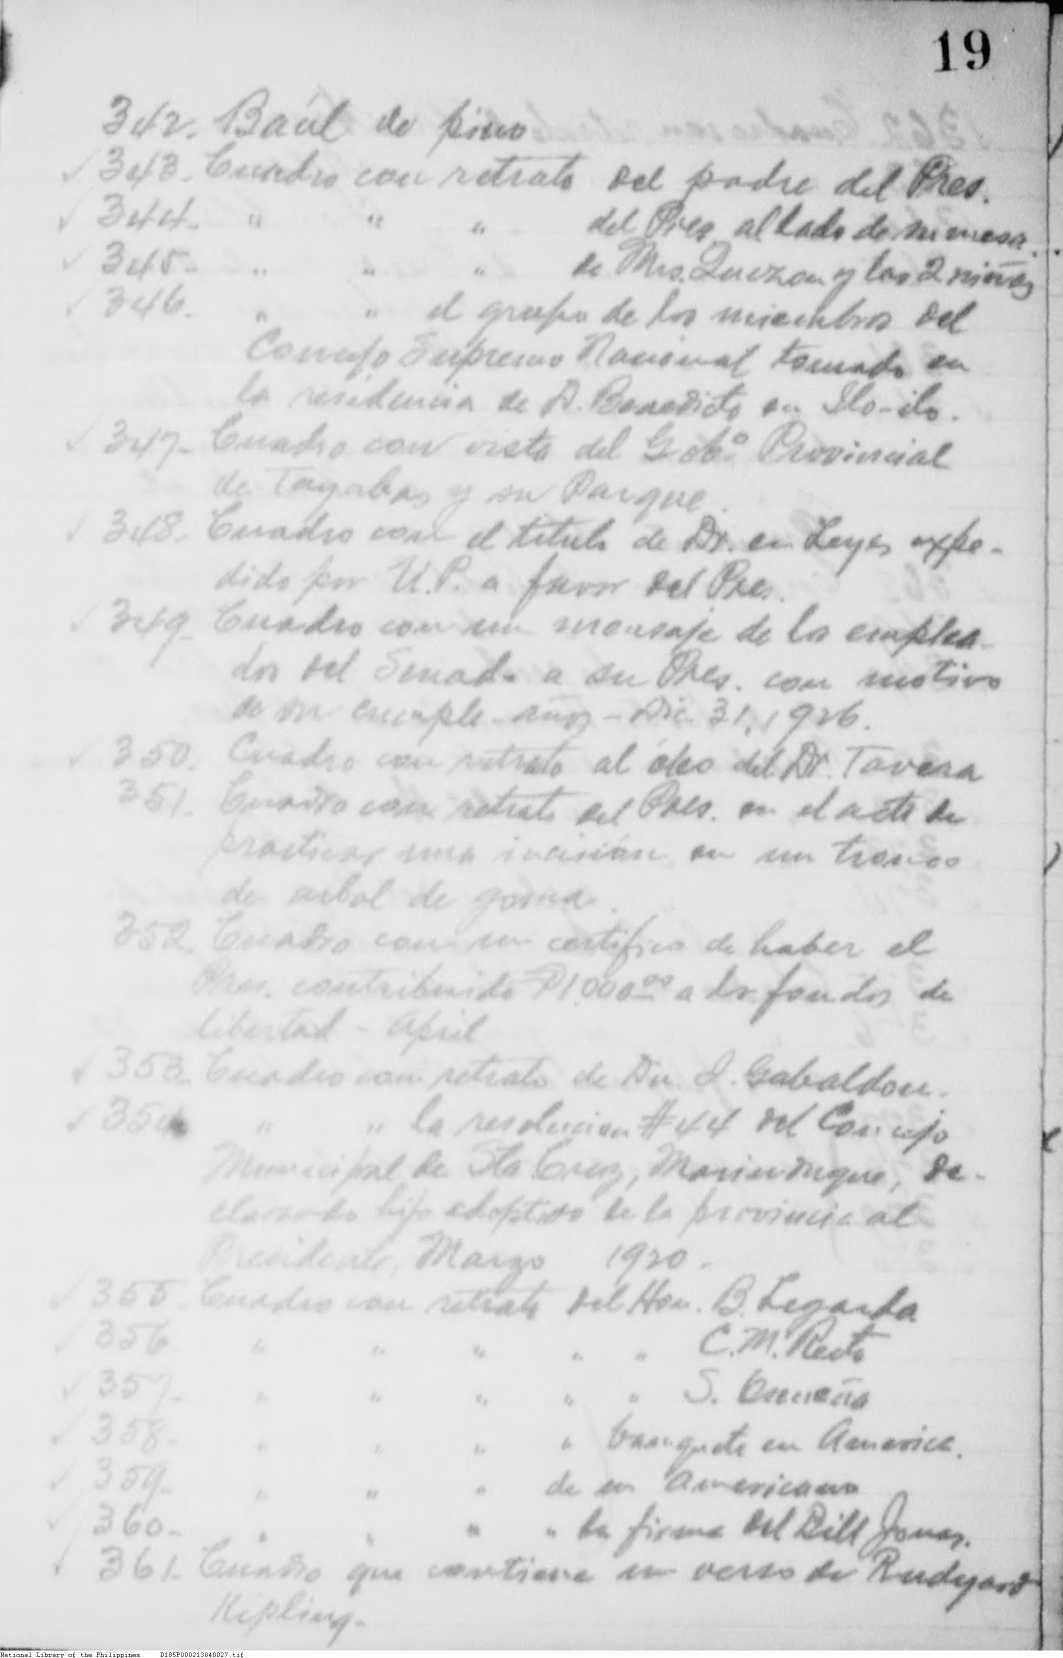 19
342. Baúl de pino
✓ 343. Cuadro con retrato del padre del Pres.
✓ 344. " " " del Pres. al lado de su mesa.
✓ 345. " " " de Mrs. Quezon y los 2 niños
✓ 346. " " el grupo de los miembros del
Consejo Supremo Nacional tomado en
la residencia de D. Benedicto en Ilo-ilo.
✓ 347. Cuadro con vista del Gobo. Provincial
de Tayabas y su Parque.
✓ 348. Cuadro con el titulo de Dr. en Leyes expe-
dido por U.P. a favor del Pres.
✓ 349. Cuadro con un mensaje de los emplea-
dos del Senado a su Pres. con motivo
de su cumple-años - Dic. 31, 1926.
✓ 350. Cuadro con retrato al óleo del Dr. Tavera
351. Cuadro con retrato del Pres. en el acto de
practicar una incisión en un tronco
de arbol de goma.
352. Cuadro con un certifico de haber el
Pres. contribuido ₱1,000.00 a los fondos de
libertad - April
✓ 353. Cuadro con retrato de Dn. I. Gabaldon.
✓ 354. " " la resolucion #44 del Concejo
Municipal de Sta Cruz, Marinduque, de-
clarando hijo adoptivo de la provincia al
Presidente, Marzo 1920.
✓ 355. Cuadro con retrato del Hon. B. Legarda
✓ 356. " " " " " C. M. Recto
✓ 357. " " " " " S. Osmeña
✓ 358. " " " " banquete en America.
✓ 359. " " " de un Americano
✓ 360. " " " " la firma del Bill Jones.
✓ 361. Cuadro que contiene un verso de Rudyard
Kipling.
National Library of the Philippines D185P000213040027.tif